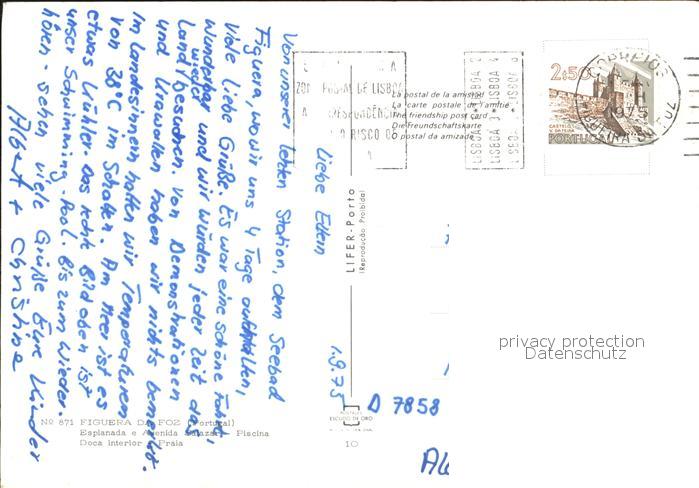 1.9.75
Liebe Eltern
Von unserer letzten Station, dem Seebad
Figuera, wo wir uns 4 Tage aufhalten,
viele liebe Grüße. Es war eine schöne Fahrt,
wunderbar und wir würden jeder Zeit das
Land wieder besuchen. Von Demonstrationen
und Krawallen haben wir nichts bemerkt.
Im Landesinnern hatten wir Temperaturen
von 38°C im Schatten. Am Meer ist es
etwas kühler. Das rechte Bild oben ist
unser Schwimming-Pool. Bis zum Wieder-
hören-sehen, viele Grüße Eure Kinder
Albert + Christine
Nº 871 FIGUERA DA FOZ (Portugal)
Esplanada e Avenida Salazar - Piscina
Doca interior - Praia
10
LIFER-Porto
(Reprodução Proibida)
La postal de la amistad
La carte postale de l'amitié
The friendship post card
Die Freundschaftskarte
O postal da amizade
POSTAL DE LISBOA
RISCO
LISBOA 3 LISBOA
2$50
CORREIOS
1975
FIGUEIRA DA FOZ
CASTELO
V. DA FEIRA
PORTUGAL
D 7858
privacy protection
Datenschutz